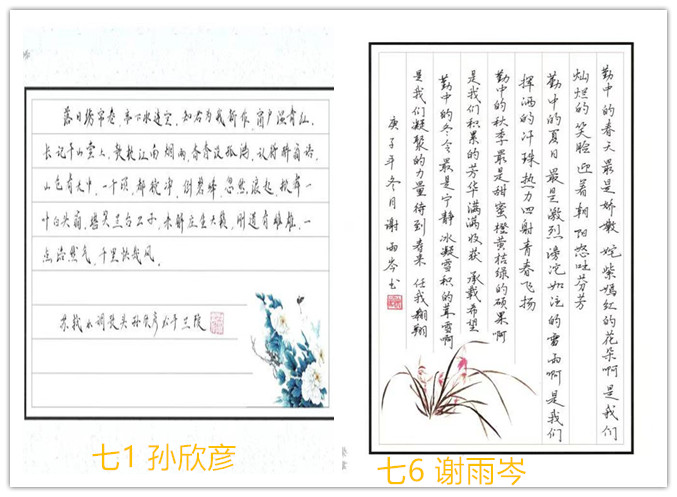 落日绣帘卷，亭下水连空，知君为我新作，窗户湿青红，
长记平山堂上，欹枕江南烟雨，杳杳没孤鸿，认得醉翁语，
山色有无中，一千顷，都镜净，倒碧峰，忽然浪起，掀舞一
叶白头翁，堪笑兰台公子，未解庄生天籁，刚道有雌雄，一
点浩然气，千里快哉风。
苏轼水调歌头孙欣彦
七1 孙欣彦
勤中的春天最是娇嫩 姹紫嫣红的花朵啊是我们
灿烂的笑脸 迎着朝阳怒吐芬芳
勤中的夏日最是激烈 滂沱如注的雷雨啊是我们
挥洒的汗珠热力四射青春飞扬
勤中的秋季最是甜蜜橙黄桔绿的硕果啊
是我们积累的芳华满满收获 承载希望
勤中的冬令最是宁静 冰凝雪积的茸雪啊
是我们凝聚的力量待到春来 任我翱翔
庚子年冬月谢雨岑书
七6 谢雨岑